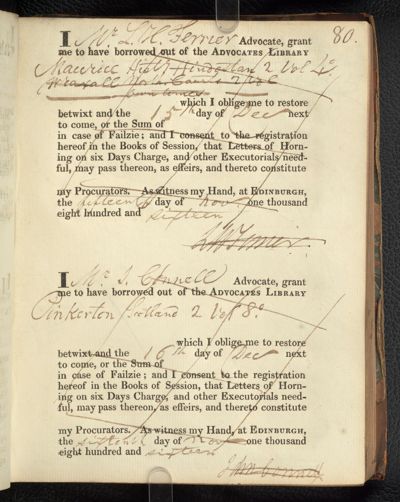 80.
I Mr. L. W. Ferrier Advocate, grant
me to have borrowed out of the ADVOCATES LIBRARY
Maurice Hist. Hindostan 2 Vol 4o
Wraxall 2 Vol
which I oblige me to restore
betwixt and the 15th day of Dec next
to come, or the Sum of
in case of Failzie; and I consent to the registration
hereof in the Books of Session, that Letters of Horn-
ing on six Days Charge, and other Executorials need-
ful, may pass thereon, as effeirs, and thereto constitute
my Procurators. As witness my Hand, at EDINBURGH,
the fifteenth day of Nov one thousand
eight hundred and sixteen
I Mr. J. Connell Advocate, grant
me to have borrowed out of the ADVOCATES LIBRARY
Pinkerton Scotland 2 Vol 8o
which I oblige me to restore
betwixt and the 16th day of Dec next
to come, or the Sum of
in case of Failzie; and I consent to the registration
hereof in the Books of Session, that Letters of Horn-
ing on six Days Charge, and other Executorials need-
ful, may pass thereon, as effeirs, and thereto constitute
my Procurators. As witness my Hand, at EDINBURGH,
the sixteenth day of Nov one thousand
eight hundred and sixteen